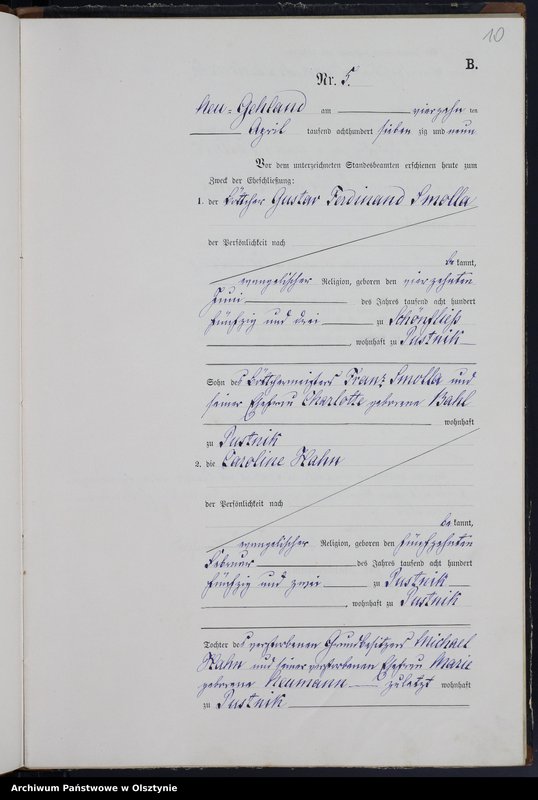 10
B.
Nr. 5.
Neu-Gehland am vierzehn ten
April tausend achthundert sieben zig und neun
Vor dem unterzeichneten Standesbeamten erschienen heute zum
Zweck der Eheschließung:
1. der Böttcher Gustav Ferdinand Smolla
der Persönlichkeit nach
be kannt,
evangelischer Religion, geboren den vierzehnten
Juni des Jahres tausend acht hundert
fünfzig und drei zu Schönfließ
, wohnhaft zu Pustnik
Sohn des Böttchermeisters Franz Smolla und
seiner Ehefrau Charlotte geborene Bahl
wohnhaft
zu Pustnik
2. die Caroline Hahn
der Persönlichkeit nach
be kannt,
evangelischer Religion, geboren den fünfzehnten
Februar des Jahres tausend acht hundert
fünfzig und zwei zu Pustnik
, wohnhaft zu Pustnik
Tochter des verstorbenen Grundbesitzers Michael
Hahn und seiner verstorbenen Ehefrau Marie
geborene Neumann zuletzt wohnhaft
zu Pustnik
Archiwum Państwowe w Olsztynie